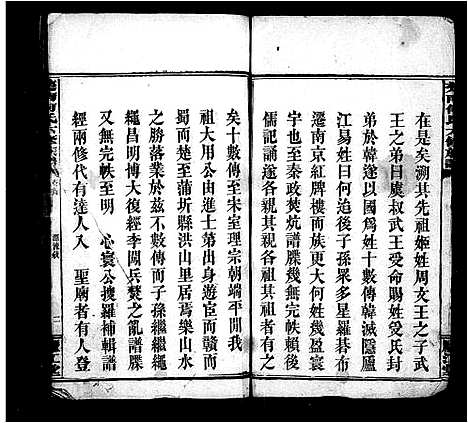 在是矣溯其先祖姬姓周文王之子武
王之弟曰虞叔武王受命賜姓受氏封
於韓遂以國爲姓十數傳韓滅隱廬
江易姓曰何迨後子孫眾多星羅碁布
遷南京紅牌樓而族更大何姓幾盈寰
宇矣至秦政焚坑譜牒幾無完帙賴宿
儒記誦遂各親其親各祖其祖者有之
矣十數傳至宋室理宗朝端平開我
祖俊卿公由進士弟出身遊宦而贛而
蜀而楚至蒲圻縣洪山里居焉樂山水
之勝落業於茲不數傳而子孫繼繼繩
繩昌明博大復經李闖兵燹之亂譜牒
又無完帙至明 心寰公搜羅補輯譜
經兩修代有達人入 聖廟者有人登